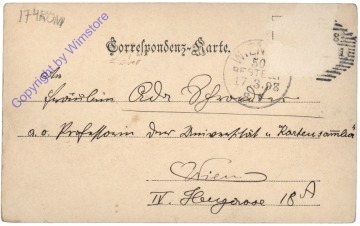 Correspondenz-Karte.
An
Fräulein Ada Schroedter
a.o. Professorin der Universität u. Kartensamlerin
Wien
IV. Heugasse 18A
WIEN
50
BESTELLT
17.3.98
Copyright by Wimstore